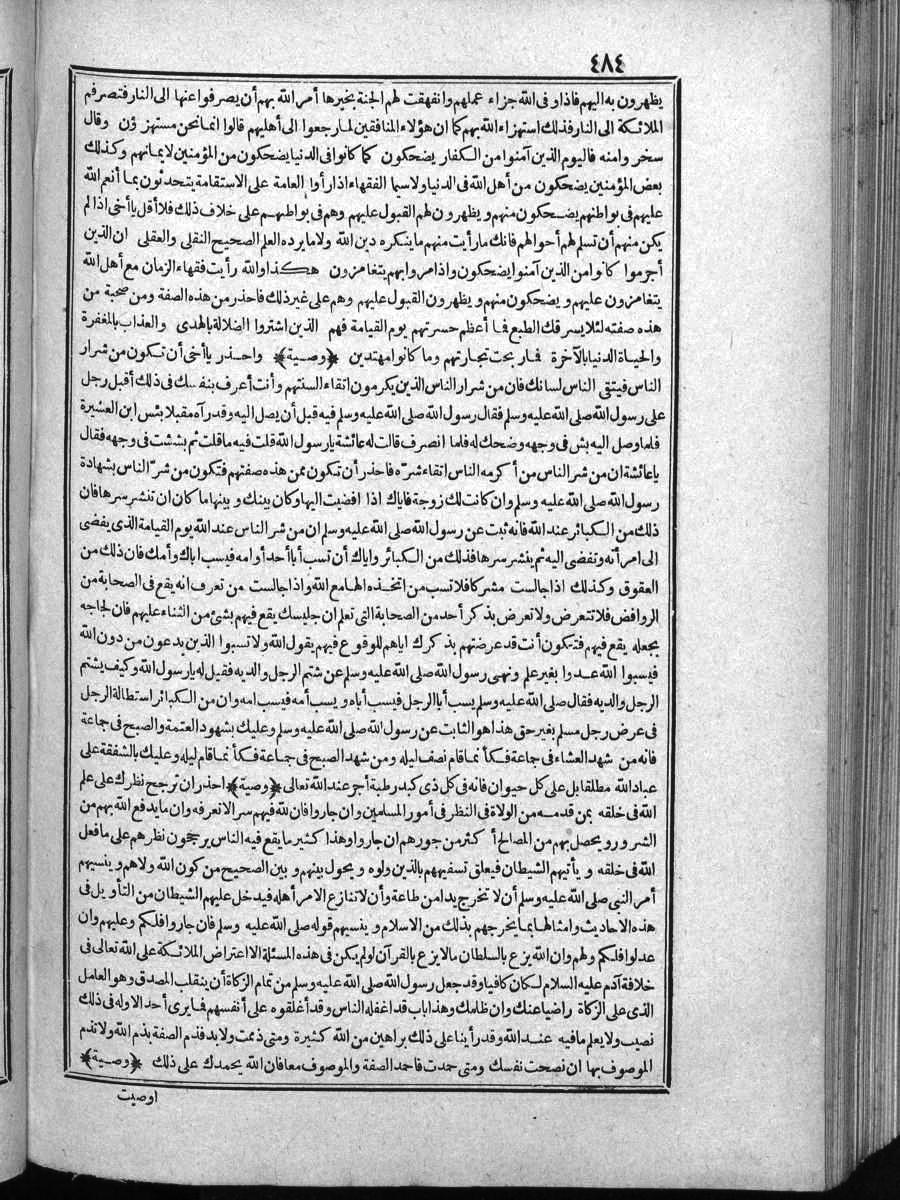 ٤٨٤
يظهرون به اليهم فاذا وفى الله جزاء عملهم وانفهقت لهم الجنة بخيرها أمر الله بهم أن يصرفوا عنها الى النار فتصرفهم
الملائكة الى النار فذلك استهزاء الله بهم كما ان هؤلاء المنافقين لما رجعوا الى أهليهم قالوا انما نحن مستهزؤن وقال
سخر وامنه فاليوم الذين آمنوا من الكفار يضحكون كما كانوا فى الدنيا يضحكون من المؤمنين لايمانهم وكذلك
بعض المؤمنين يضحكون من أهل الله فى الدنيا ولاسيما الفقهاء اذا رأوا العامة على الاستقامة يتحدثون بما أنعم الله
عليهم فى بواطنهم يضحكون منهم ويظهرون لهم القبول عليهم وهم فى بواطنهم على خلاف ذلك فلا أقل يا أخى اذا لم
يكن منهم أن تسلم لهم أحوالهم فانك ما رأيت منهم ما ينكره دين الله ولا ما يرده العلم الصحيح النقلى والعقلى ان الذين
أجرموا كانوا من الذين آمنوا يضحكون واذا مروا بهم يتغامزون هكذا والله رأيت فقهاء الزمان مع أهل الله
يتغامزون عليهم ويضحكون منهم ويظهرون القبول عليهم وهم على غير ذلك فاحذر من هذه الصفة ومن صحبة من
هذه صفته لئلا يسرقك الطبع فما أعظم حسرتهم يوم القيامة فهم الذين اشتروا الضلالة بالهدى والعذاب بالمغفرة
والحياة الدنيا بالآخرة فما ربحت تجارتهم وما كانوا مهتدين ﴿وصية﴾ واحذر يا أخى أن تكون من شرار
الناس فيتقى الناس لسانك فان من شرار الناس الذين يكرمون اتقاء السنتهم وأنت أعرف بنفسك فى ذلك أقبل رجل
على رسول الله صلى الله عليه وسلم فقال رسول الله صلى الله عليه وسلم فيه قبل أن يصل اليه وقد رآه مقبلا بئس ابن العشيرة
فلما وصل اليه بش فى وجهه وضحك له فلما انصرف قالت له عائشة يا رسول الله قلت فيه ما قلت ثم بششت فى وجهه فقال
يا عائشة ان من شر الناس من أكرمه الناس اتقاء شره فاحذر أن تكون ممن هذه صفتهم فتكون من شر الناس بشهادة
رسول الله صلى الله عليه وسلم وان كانت لك زوجة فاياك اذا افضيت اليها وكان بينك وبينها ما كان ان تنشر سرها فان
ذلك من الكبائر عند الله فانه ثبت عن رسول الله صلى الله عليه وسلم ان من شر الناس عند الله يوم القيامة الذى يفضى
الى امرأته وتفضى اليه ثم ينشر سرها فذلك من الكبائر واياك أن تسب أبا أحد أو امه فيسب اباك وأمك فان ذلك من
العقوق وكذلك اذا جالست مشركا فلا تسب من اتخذه الها مع الله واذا جالست من تعرف انه يقع فى الصحابة من
الروافض فلا تتعرض ولا تعرض بذكر أحد من الصحابة التى تعلم ان جليسك يقع فيهم بشئ من الثناء عليهم فان لجاجه
يجعله يقع فيهم فتكون أنت قد عرضتهم بذكرك اياهم للوقوع فيهم يقول الله ولا تسبوا الذين يدعون من دون الله
فيسبوا الله عدوا بغير علم ونهى رسول الله صلى الله عليه وسلم عن شتم الرجل والديه فقيل له يا رسول الله وكيف يشتم
الرجل والديه فقال صلى الله عليه وسلم يسب أبا الرجل فيسب أباه ويسب أمه فيسب امه وان من الكبائر استطالة الرجل
فى عرض رجل مسلم بغير حق هذا هو الثابت عن رسول الله صلى الله عليه وسلم وعليك بشهود العتمة والصبح فى جماعة
فانه من شهد العشاء فى جماعة فكأنما قام نصف ليله ومن شهد الصبح فى جماعة فكأنما قام ليله وعليك بالشفقة على
عباد الله مطلقا بل على كل حيوان فانه فى كل ذى كبد رطبة أجر عند الله تعالى ﴿وصية﴾ احذر ان ترجح نظرك على علم
الله فى خلقه بمن قدمه من الولاة فى النظر فى أمور المسلمين وان جاروا فان لله فيهم سرا لا نعرفه وان ما يدفع الله بهم من
الشرور ويحصل بهم من المصالح أكثر من جورهم ان جاروا وهذا كثير ما يقع فيه الناس يرجحون نظرهم على ما فعل
الله فى خلقه ويأتيهم الشيطان فيعلق تسفيههم بالذين ولوه ويحول بينهم وبين الصحيح من كون الله ولاهم وينسيهم
أمر النبى صلى الله عليه وسلم أن لا تخرج يدا من طاعة وأن لا تنازع الامر أهله فيدخل عليهم الشيطان من التأويل فى
هذه الاحاديث وامثالها بما يخرجهم بذلك من الاسلام وينسيهم قوله صلى الله عليه وسلم فان جاروا فلكم وعليهم وان
عدلوا فلكم ولهم وان الله يزع بالسلطان ما لا يزع بالقرآن لو لم يكن فى هذه المسئلة الا اعتراض الملائكة على الله تعالى فى
خلافة آدم عليه السلام لكان كافيا وقد جعل رسول الله صلى الله عليه وسلم من تمام الزكاة أن ينقلب المصدق وهو العامل
الذى على الزكاة راضيا عنك وان ظلمك وهذا باب قد اغفله الناس وقد أغلقوه على أنفسهم فما يرى أحد الا وله فى ذلك
نصيب ولا يعلم ما فيه عند الله وقد رأينا على ذلك براهين من الله كثيرة ومتى ذممت ولا بد فذم الصفة بذم الله ولا تذم
الموصوف بها ان نصحت نفسك ومتى حمدت فاحمد الصفة والموصوف معا فان الله يحمدك على ذلك ﴿وصية﴾
اوصيت